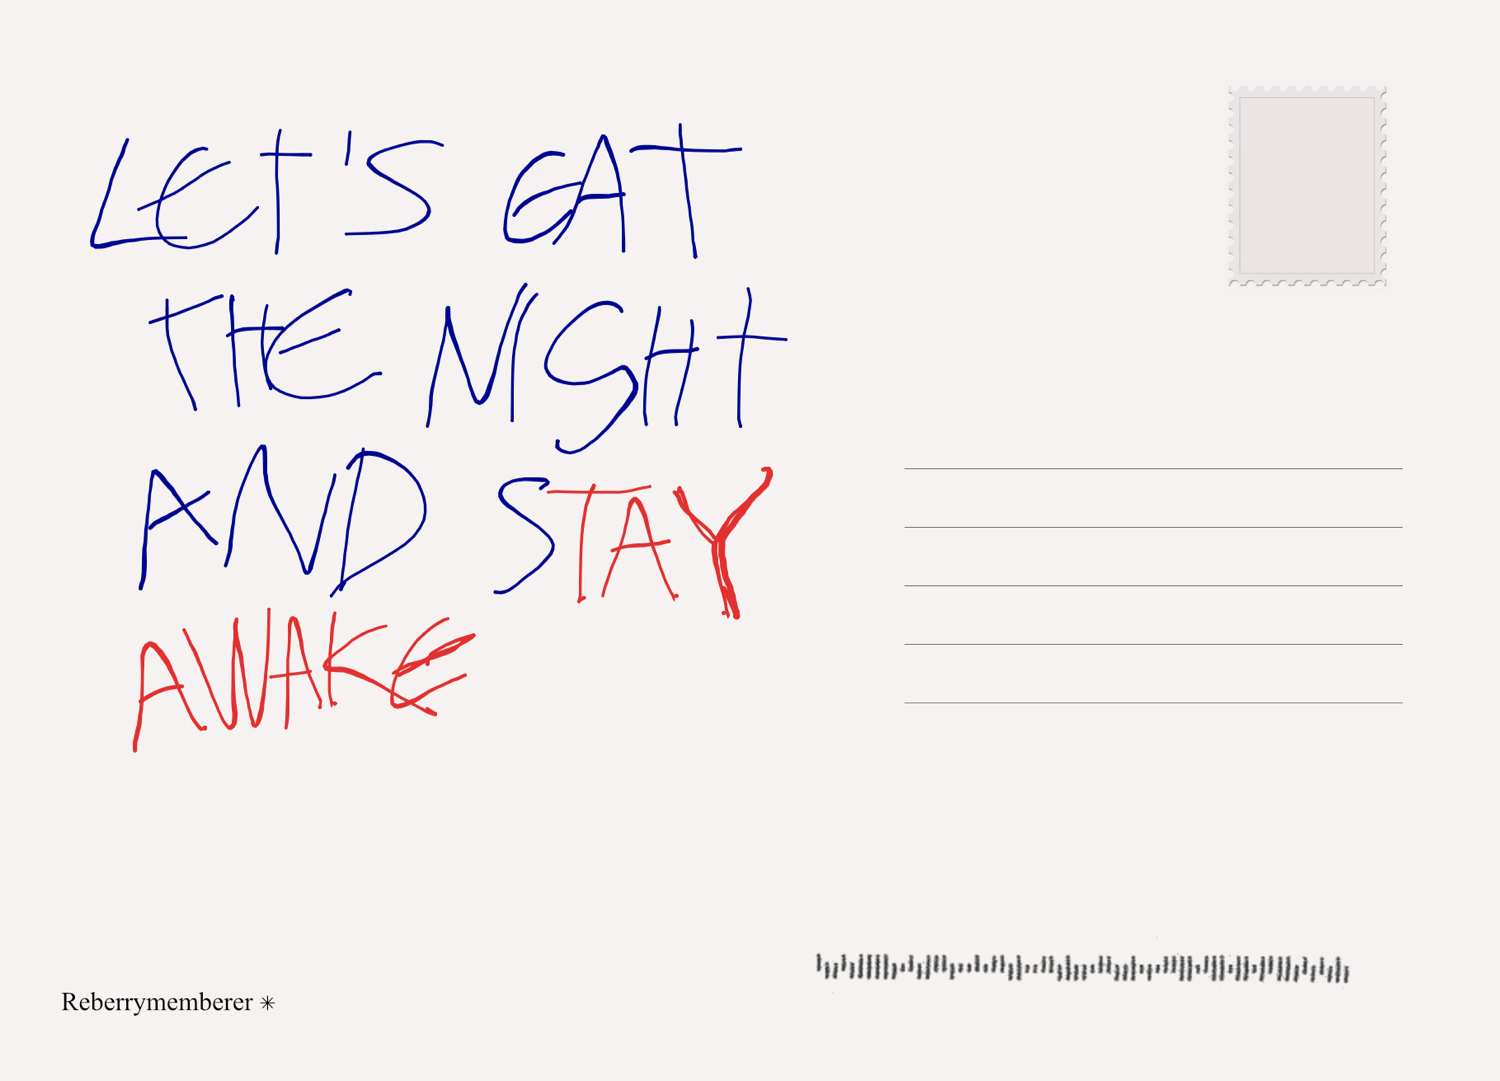 LET'S EAT
THE NIGHT
AND STAY
AWAKE
Reberrymemberer ✳